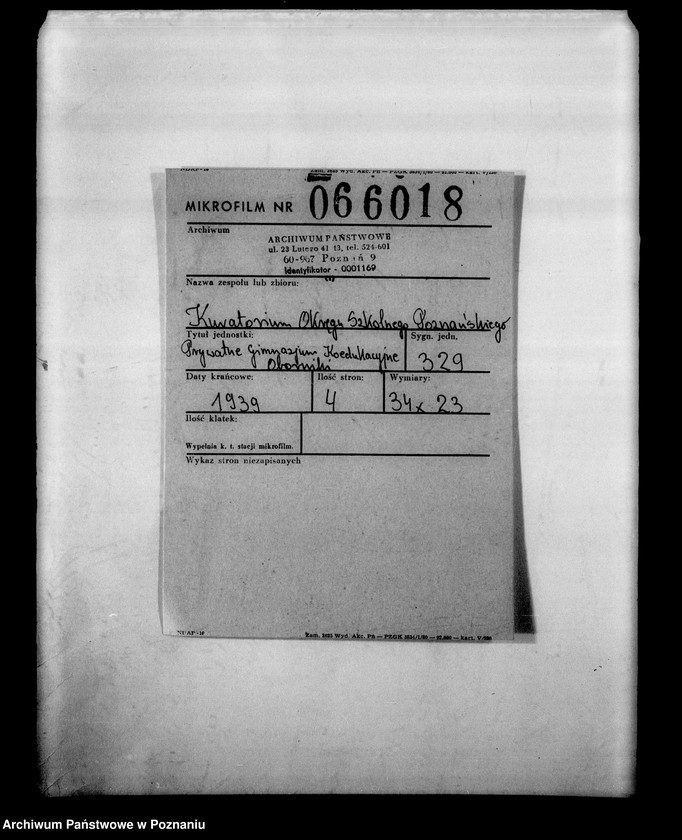 MIKROFILM NR 066018
Archiwum
ARCHIWUM PAŃSTWOWE
ul. 23 Lutego 41 43, tel. 524-601
60-967 Poznań 9
Identyfikator - 0001169
Nazwa zespołu lub zbioru:
Kuratorium Okręgu Szkolnego Poznańskiego
Tytuł jednostki: Sygn. jedn.
Prywatne Gimnazjum Koedukacyjne 329
Oborniki
Daty krańcowe: Ilość stron: Wymiary:
1939 4 34x23
Ilość klatek:
Wypełnia k. t. stacji mikrofilm.
Wykaz stron niezapisanych
Zam. 2623 Wyd. Akc. P6 — PEGK
Archiwum Państwowe w Poznaniu